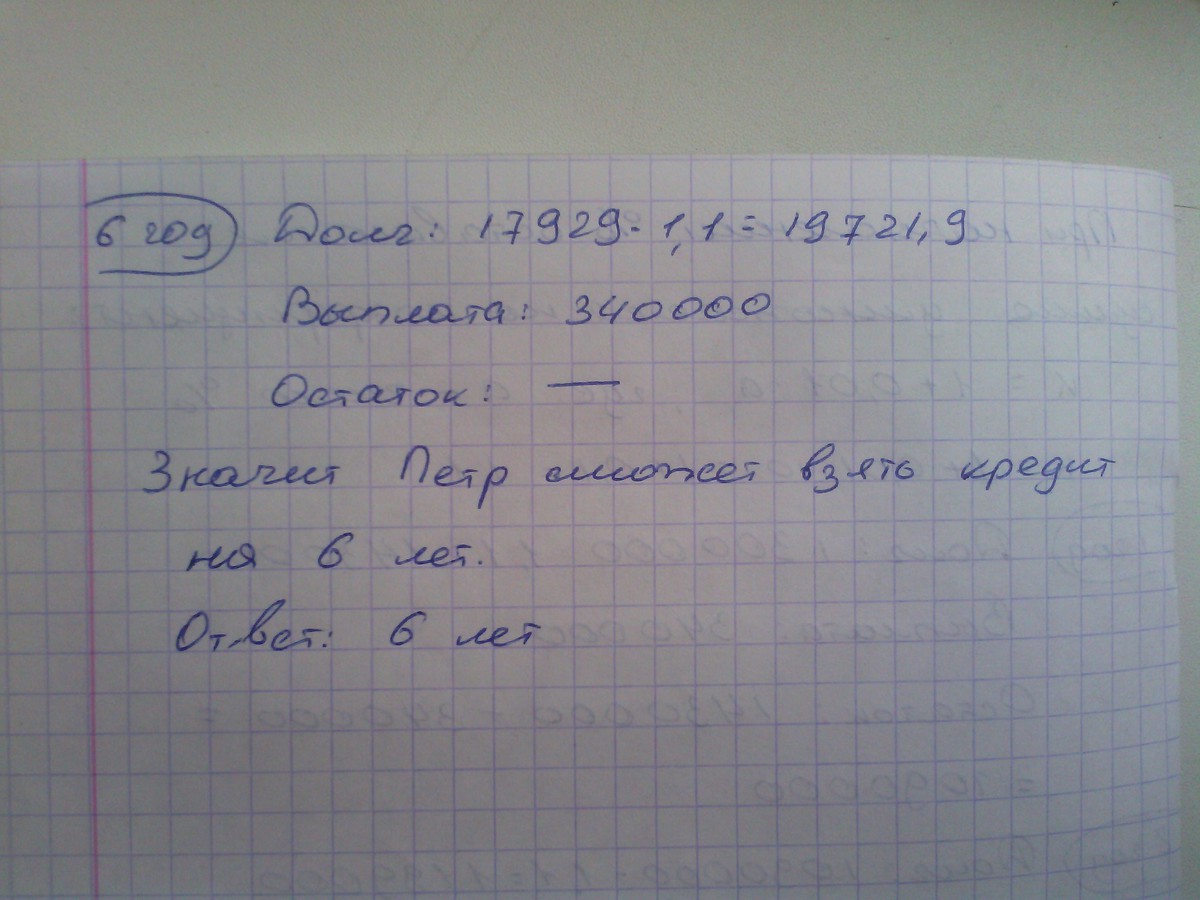 6 год Долг: 17929 · 1,1 = 19721,9
Выплата: 340000
Остаток: —
Значит Петр сможет взять кредит
на 6 лет.
Ответ: 6 лет